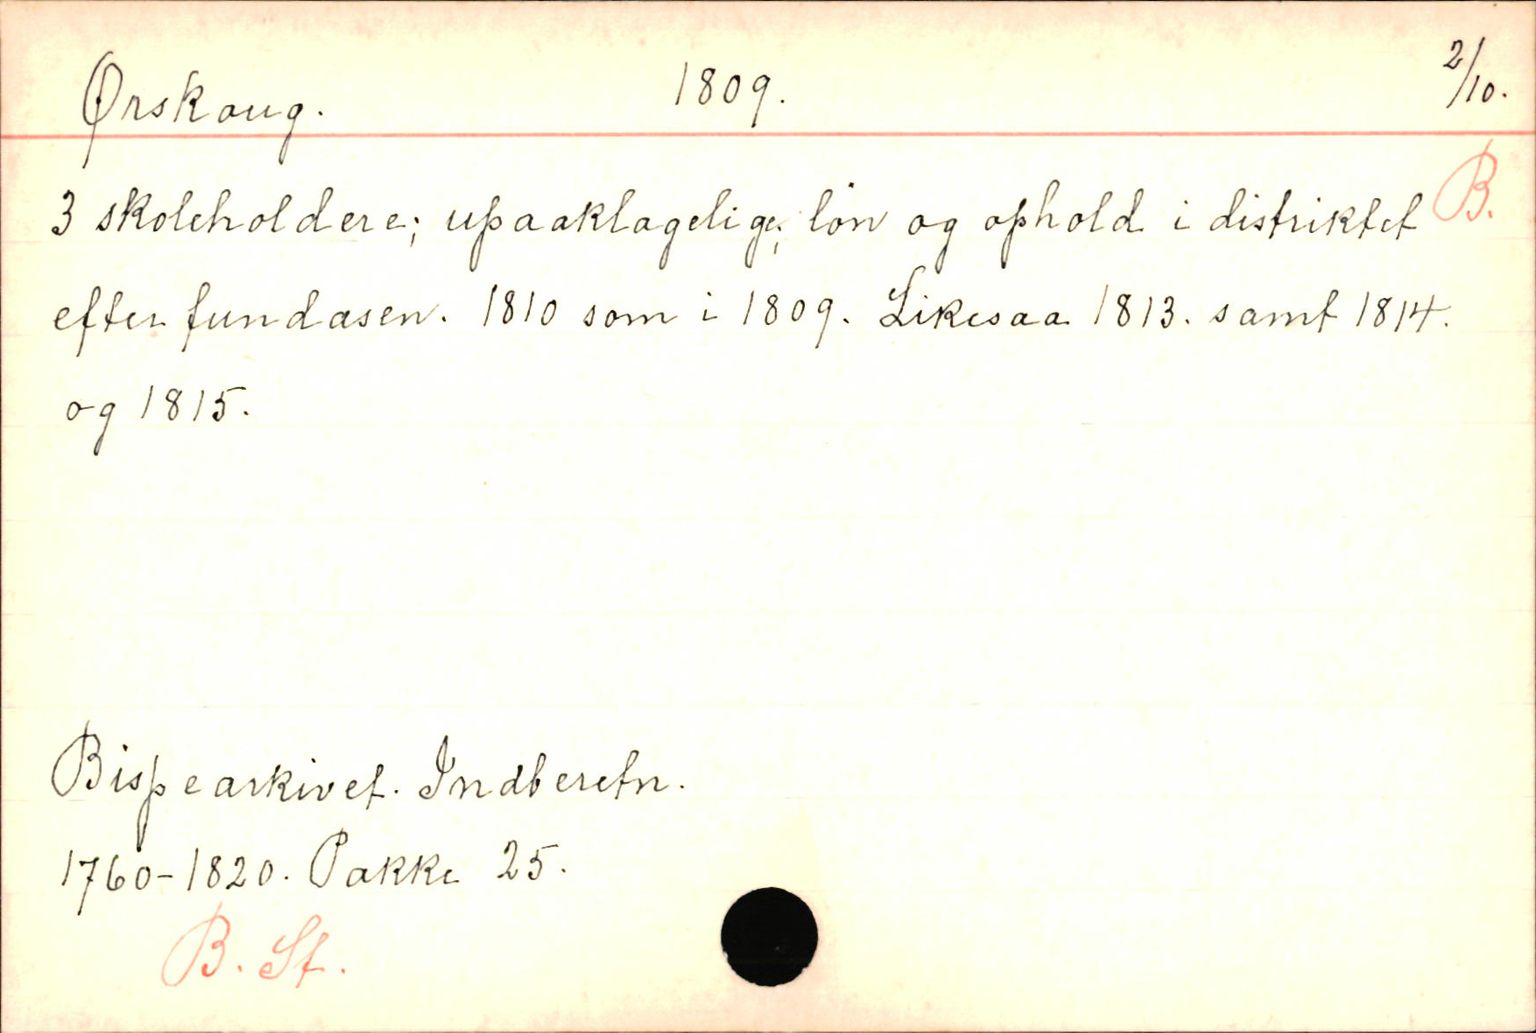 Ørskoug. 1809. 2/10.
B.
3 skoleholdere; upaaklagelige; løn og ophold i distriktet
efter fundasen. 1810 som i 1809. Likesaa 1813. samt 1814.
og 1815.
Bispearkivet. Indberetn.
1760-1820. Pakke 25.
B. St.